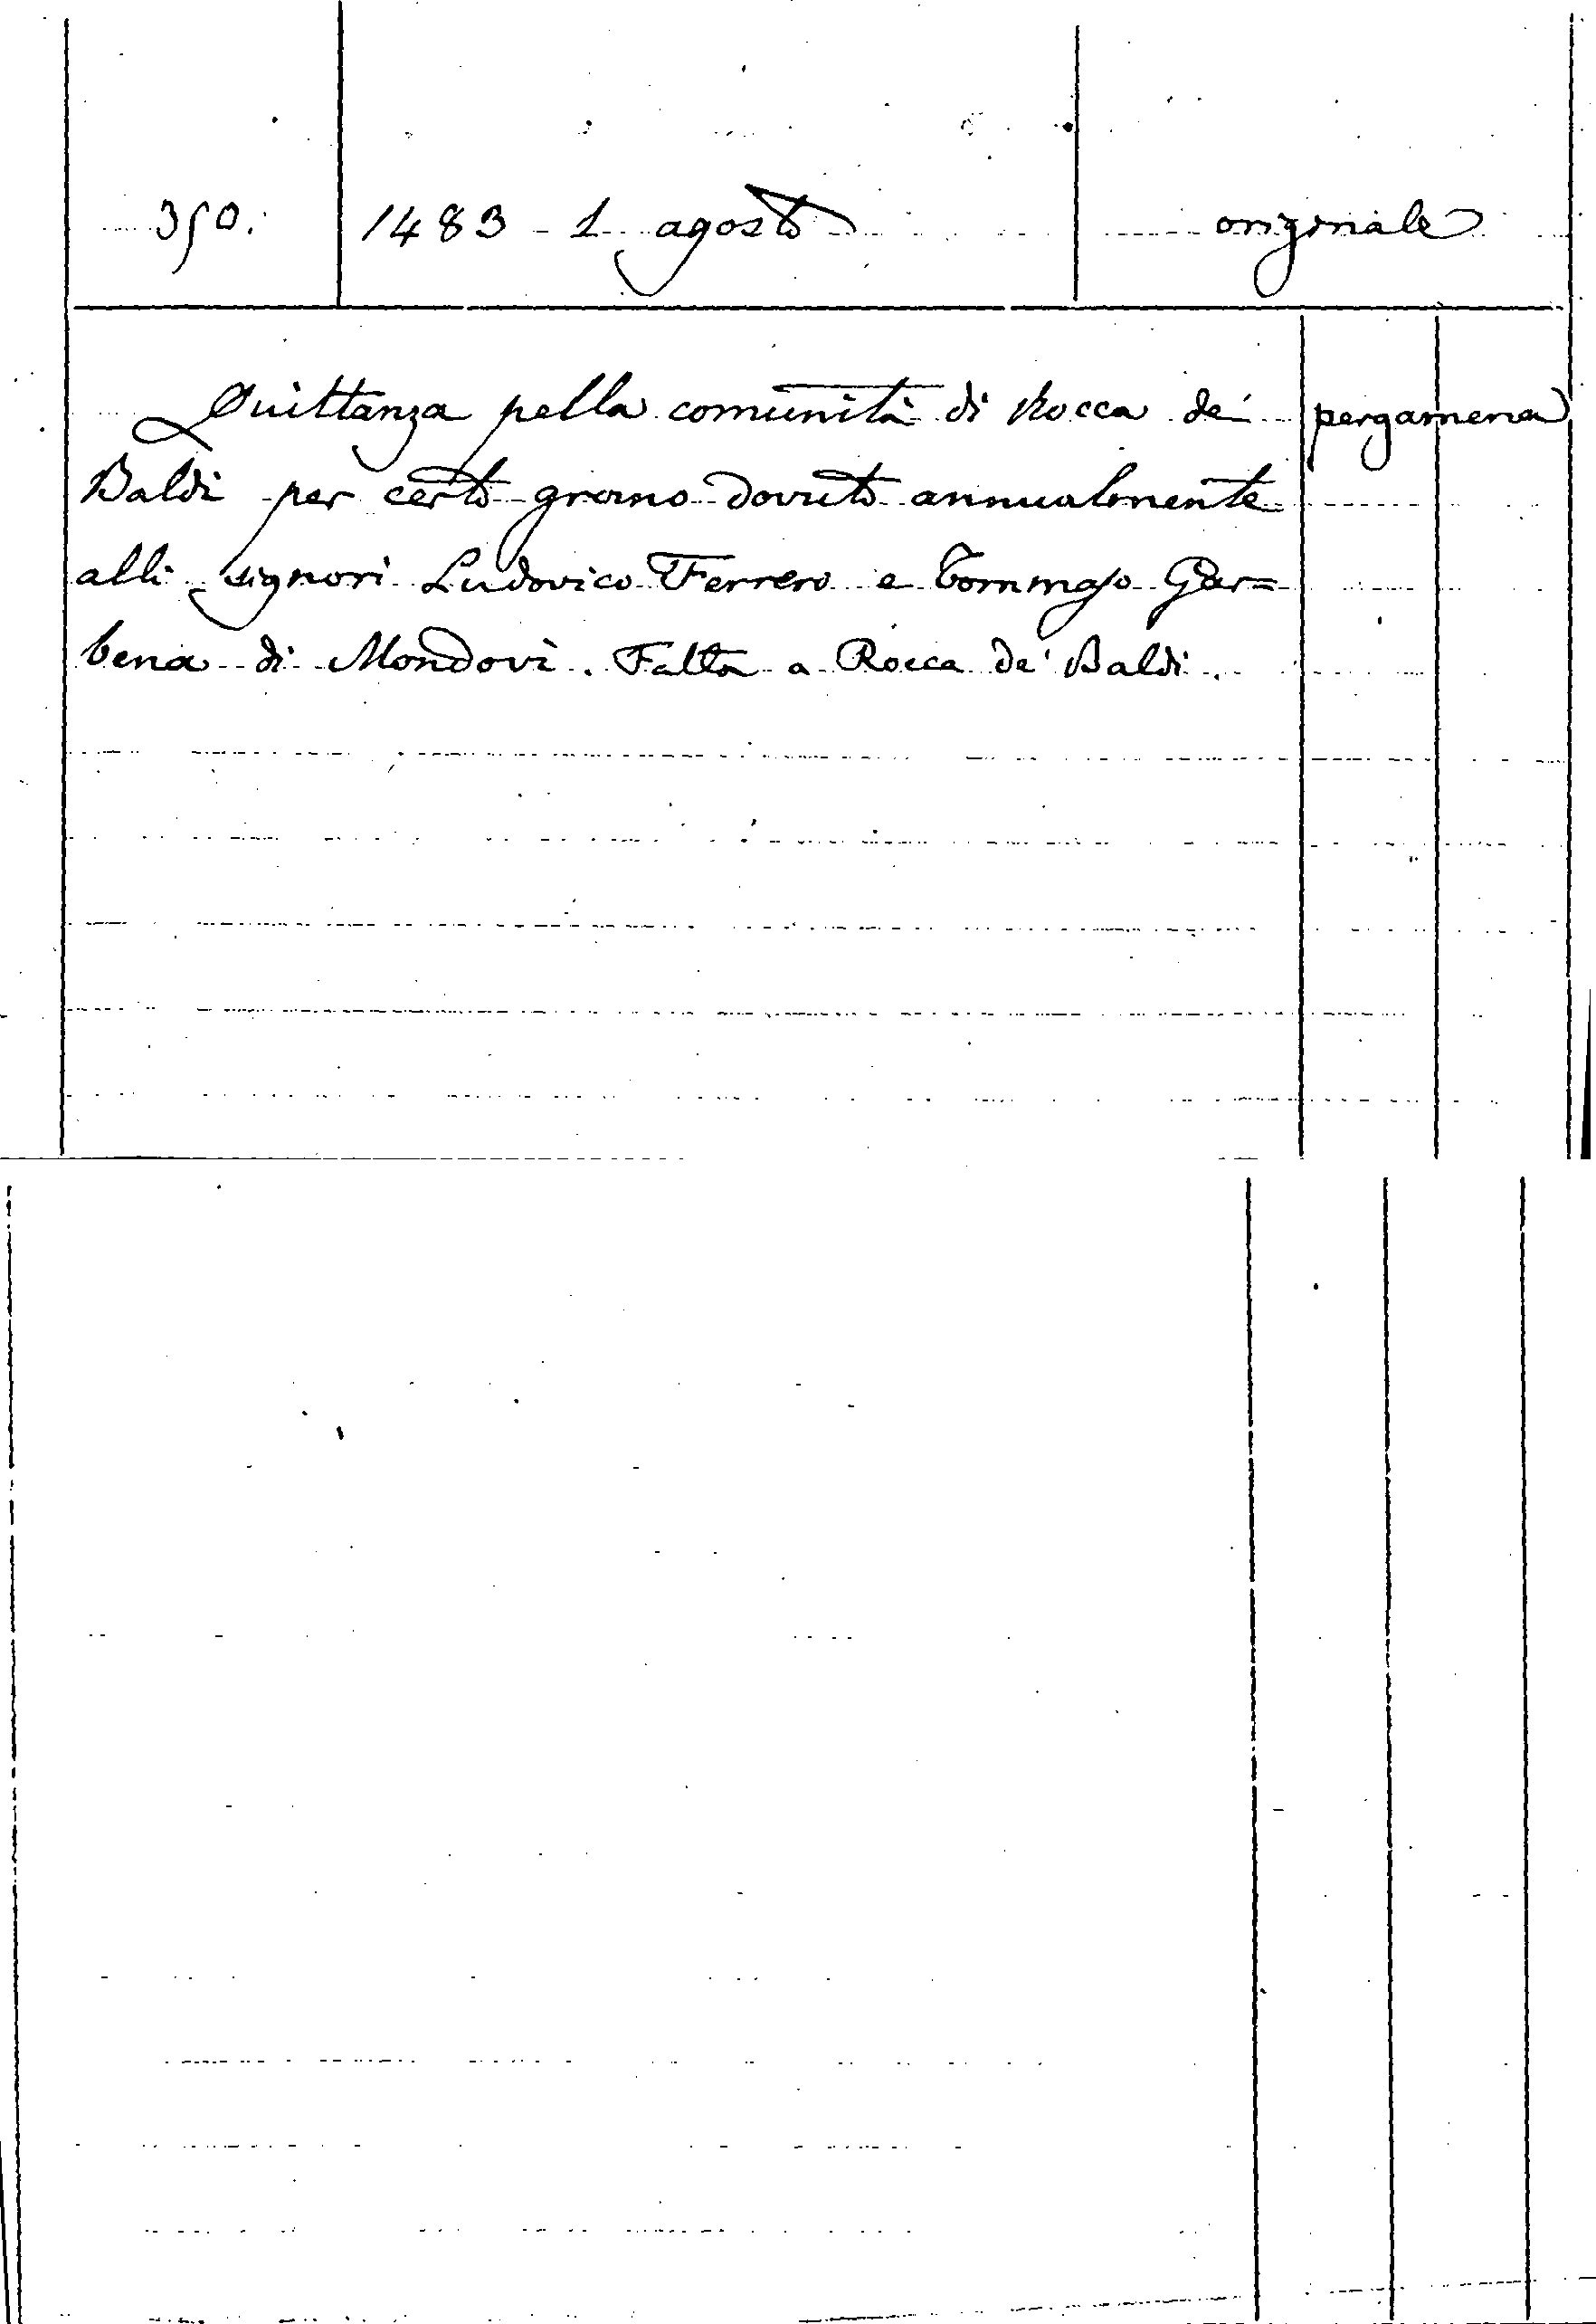 350. 1483 - 1 agosto originale
Quittanza pella comunità di Rocca de' pergamena
Baldi per certo grano dovuto annualmente
alli signori Ludovico Ferrero e Tommaso Gar=
bena di Mondovì. Fatta a Rocca de' Baldi.